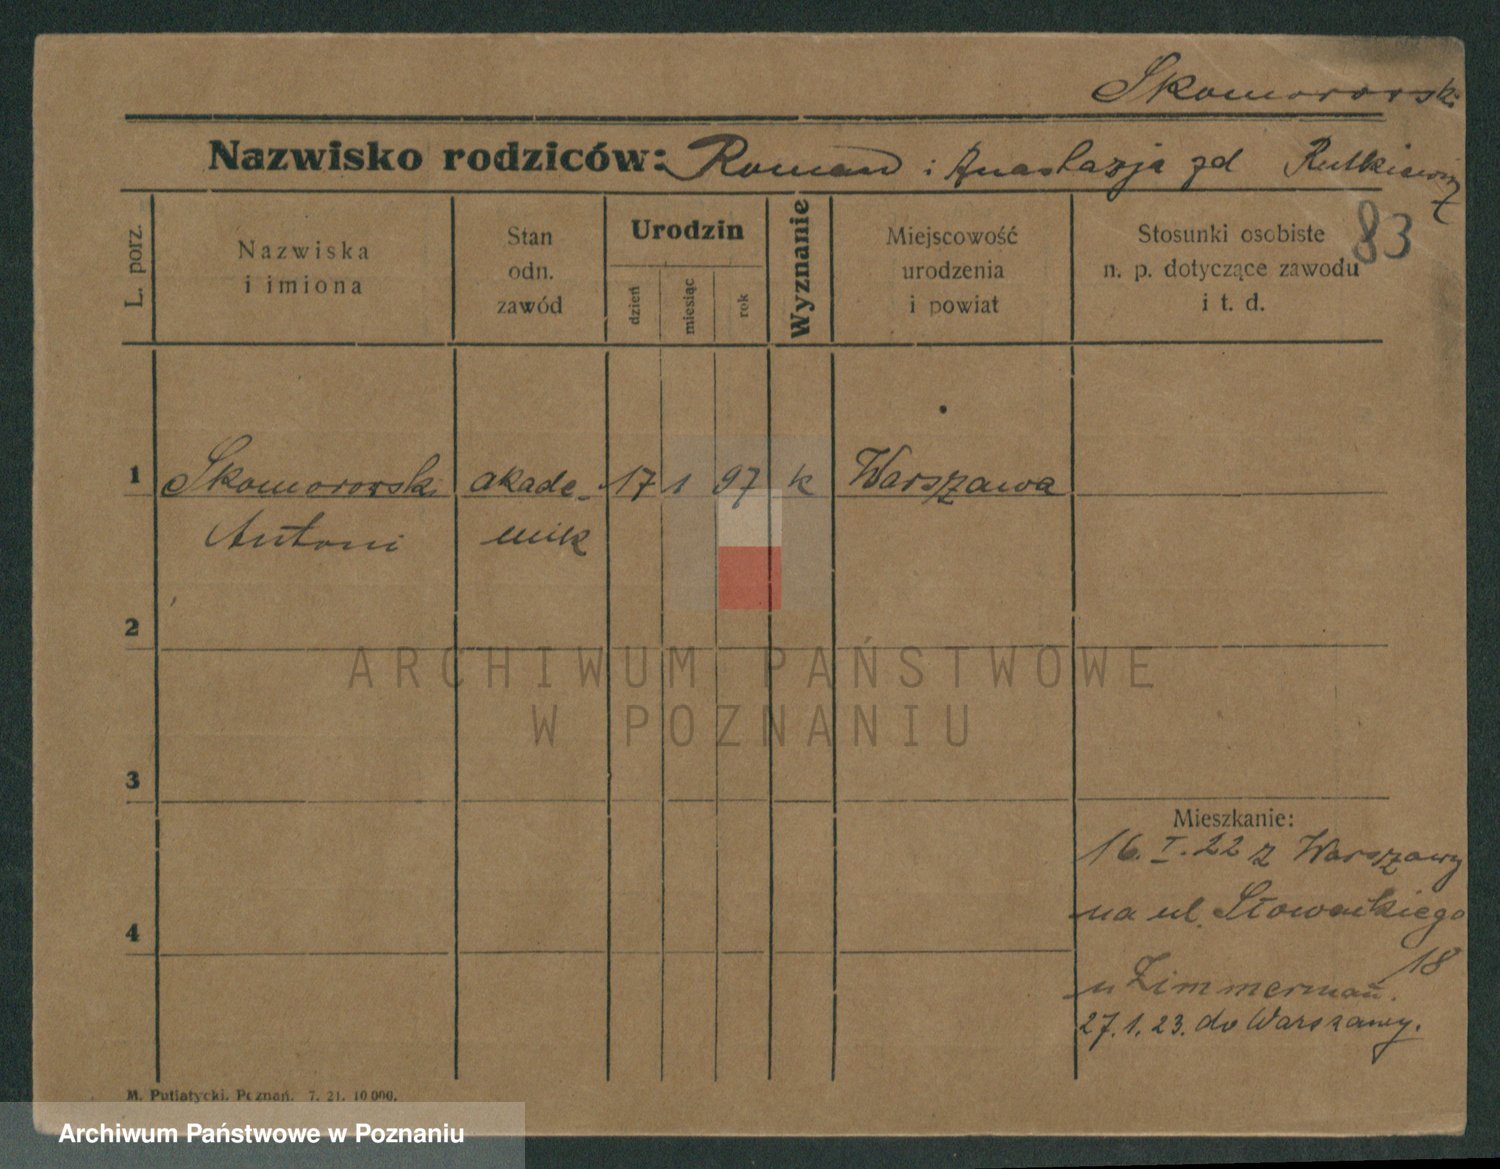 Skomorowski
Nazwisko rodziców: Roman i Anastazja zd Rutkiewicz
83
L. porz.
Nazwiska
i imiona
Stan
odn.
zawód
Urodzin
dzień
miesiąc
rok
Wyznanie
Miejscowość
urodzenia
i powiat
Stosunki osobiste
n. p. dotyczące zawodu
i t. d.
1 Skomorowski akade- 17 1 97 k Warszawa
Antoni mik
2
3
4
Mieszkanie:
16. I. 22 z Warszawy
na ul. Słowackiego
18
u Zimmerman.
27.1.23. do Warszawy.
M. Putiatycki. Poznań. 7. 21. 10 000.
ARCHIWUM PAŃSTWOWE
W POZNANIU
Archiwum Państwowe w Poznaniu